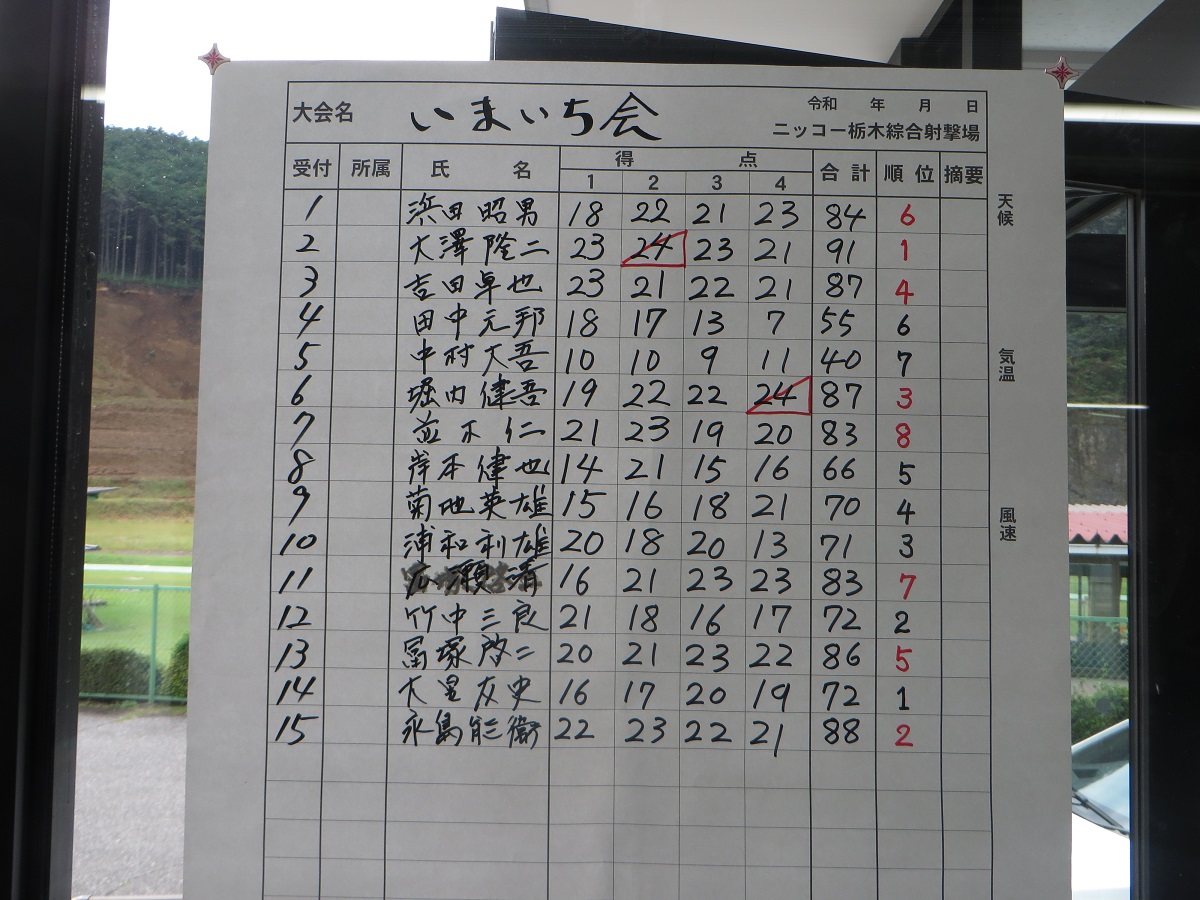 大会名 いまいち会 令和 年 月 日
ニッコー栃木綜合射撃場
受付 所属 氏 名 得 点 合計 順位 摘要
1 2 3 4
1 浜田昭男 18 22 21 23 84 6
2 大澤隆二 23 24 23 21 91 1
3 吉田卓也 23 21 22 21 87 4
4 田中元邦 18 17 13 7 55 6
5 中村大吾 10 10 9 11 40 7
6 堀内健吾 19 22 22 24 87 3
7 並木仁 21 23 19 20 83 8
8 岸本健也 14 21 15 16 66 5
9 菊地英雄 15 16 18 21 70 4
10 浦和利雄 20 18 20 13 71 3
11 広瀬清 16 21 23 23 83 7
12 竹中三良 21 18 16 17 72 2
13 冨塚啓二 20 21 23 22 86 5
14 大里友史 16 17 20 19 72 1
15 永島能衛 22 23 22 21 88 2
天候
気温
風速